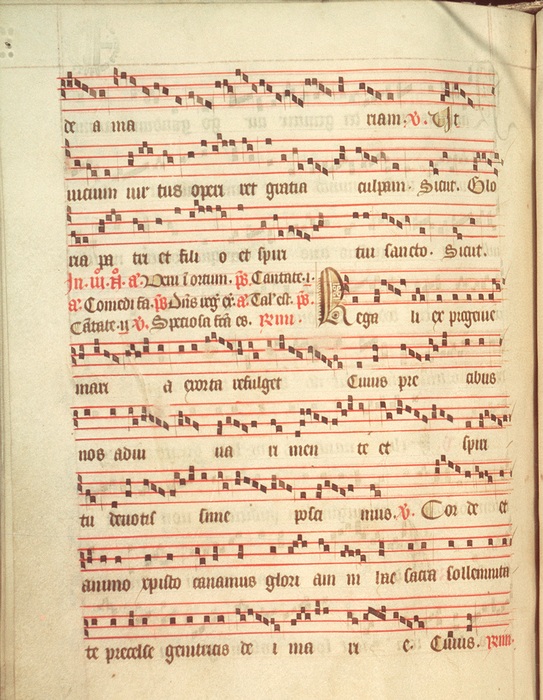 de a ma riam. v. Ut
uicium uir tus operi ret gratia culpam. Sicut. Glo
ria pa tri et fili o et spiri tui sancto. Sicut.
In. iii. N. a. Veni i ortum. ps. Cantate. i.
a. Comedi fa. ps. Dns reg. ex. a. Tal est. ps.
Cātate. ii. v. Speciosa fca es. Rm
Rega li ex progenie
mari a exorta refulget Cuius pre cibus
nos adiu ua ri men te et spiri
tu deuotis sime posci mus. v. Cor de et
animo xpisto canamus glori am in hac sacra sollempnita
te precelse genitricis de i ma ri e. Cuius. Rm